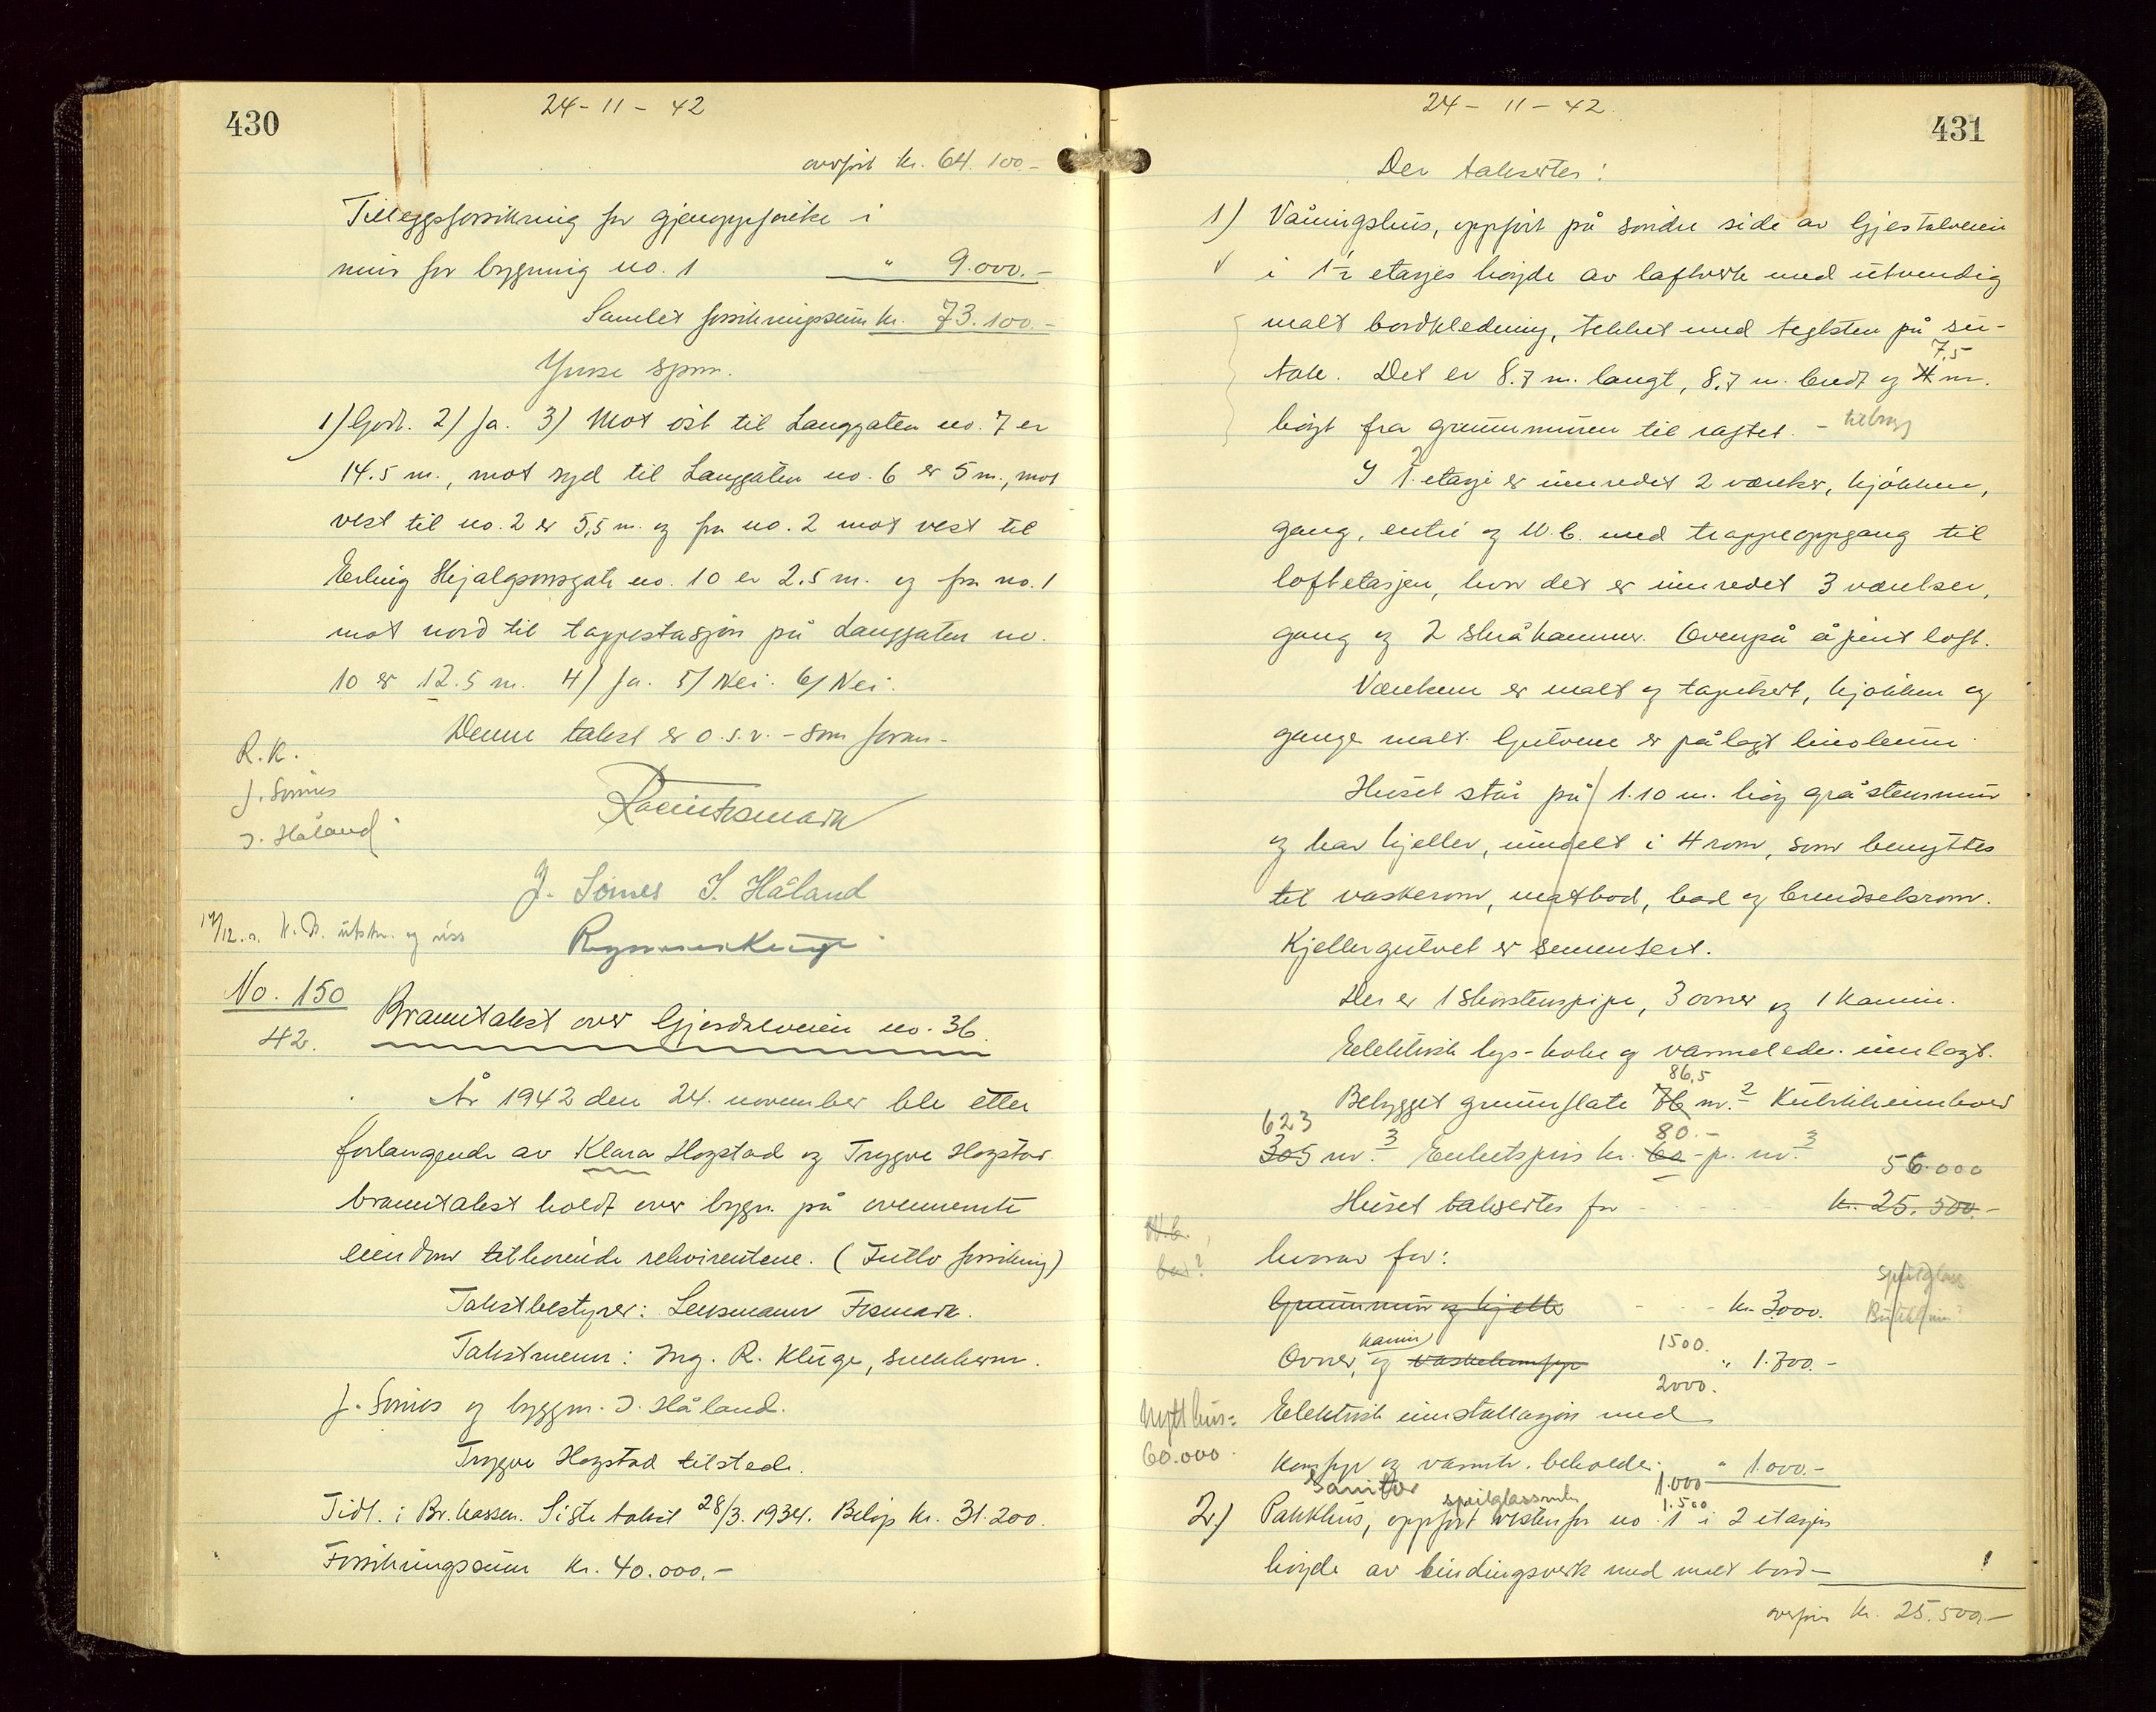 430
24 - 11 - 42
overført kr. 64.100.-
Tilleggsforsikring for gjenoppførelse i
mur for bygning no. 1 " 9.000.-
Samlet forsikringssum kr. 73.100.-
Yvrse spm.
1) Godt. 2) Ja. 3) Mot øst til Langgaten no. 7 er
14.5 m., mot syd til Langgaten no. 6 er 5 m., mot
vest til no. 2 er 5,5 m. og fra no. 2 mot vest til
Erling Skjalgsonsgate no. 10 er 2.5 m. og fra no. 1
mot nord til tappestasjon på Langgaten no.
10 er 12.5 m. 4) Ja. 5) Nei. 6) Nei.
Denne takst er o.s.v. - som foran -
R.K.
J. Sømes
I. Håland
J. Sømes I. Håland
17/12. s. K.D. utskr. og riss
No. 150
42.
Branntakst over Gjesdalveien no. 36.
År 1942 den 24. november ble etter
forlangende av Klara Hogstad og Trygve Hogstad
branntakst holdt over bygn. på ovennemte
eiendom tilhørende rekvirentene. (Fullv forsikring)
Takstbestyrer: Lensmann Fosmark.
Takstmenn: Ing. R. Kluge, snekkerm.
J. Sømes og byggm. I. Håland.
Trygve Hogstad tilstede.
Tidl. i Br.kassen. Siste takst 28/3. 1934. Beløp kr. 31.200.
Forsikringssum kr. 40.000.-
431
24 - 11 - 42.
Der takseres:
1) Våningshus, oppført på søndre side av Gjesdalveien
i 1½ etasjes høyde av laftverk med utvendig
malt bordkledning, tekket med teglsten på su-
7,5
tak. Det er 8.7 m. langt, 8.7 m. bredt og 4 m.
høyt fra grunnmuren til raftet. - tilbygg
2
I 1. etasje er innredet 2 værelser, kjøkken,
gang, entré og W.C. med trappeoppgang til
loftetasjen, hvor det er innredet 3 værelser,
gang og 2 skråkammer. Ovenpå åpent loft.
Værelsene er malt og tapetsert, kjøkken og
gange malt. Gulvene er pålagt linoleum.
Huset står på 1.10 m. høy gråstensmur
og har kjeller, inndelt i 4 rom, som benyttes
til vaskerom, matbod, bad og brendselsrom.
Kjellergulvet er sementert.
Der er 1 skorstenspipe, 3 ovner og 1 kamin.
Elektrisk lys- koke og varmeledn. innlagt.
86,5
Bebygget grunnflate 76 m.² Kubikkinnhold
623 80.-
305 m.³ Enhetspris kr. 60 - p. m.³ 56.000
Huset takseres for - - - - kr. 25.500.-
W.C.
bad?
hvorav for:
speilglass
Grunnmur og kjeller - - - kr. 3000.
kamin 1500.
Ovner, og vaskekomfyr " 1.700.-
2000.
Nytt hus =
60.000.
Elektrisk installasjon med
komfyr og varmtv. beholder. " 1.000.-
Sanitær 1.000
speilglassrute 1.500
2.) Pakkhus, oppført vestenfor no. 1 i 2 etasjes
høyde av bindingsverk med malt bord-
overføres kr. 25.500.-